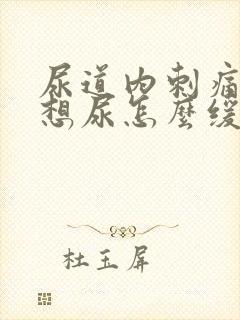 尿道内刺痛
想尿怎麽缓
杜玉屏